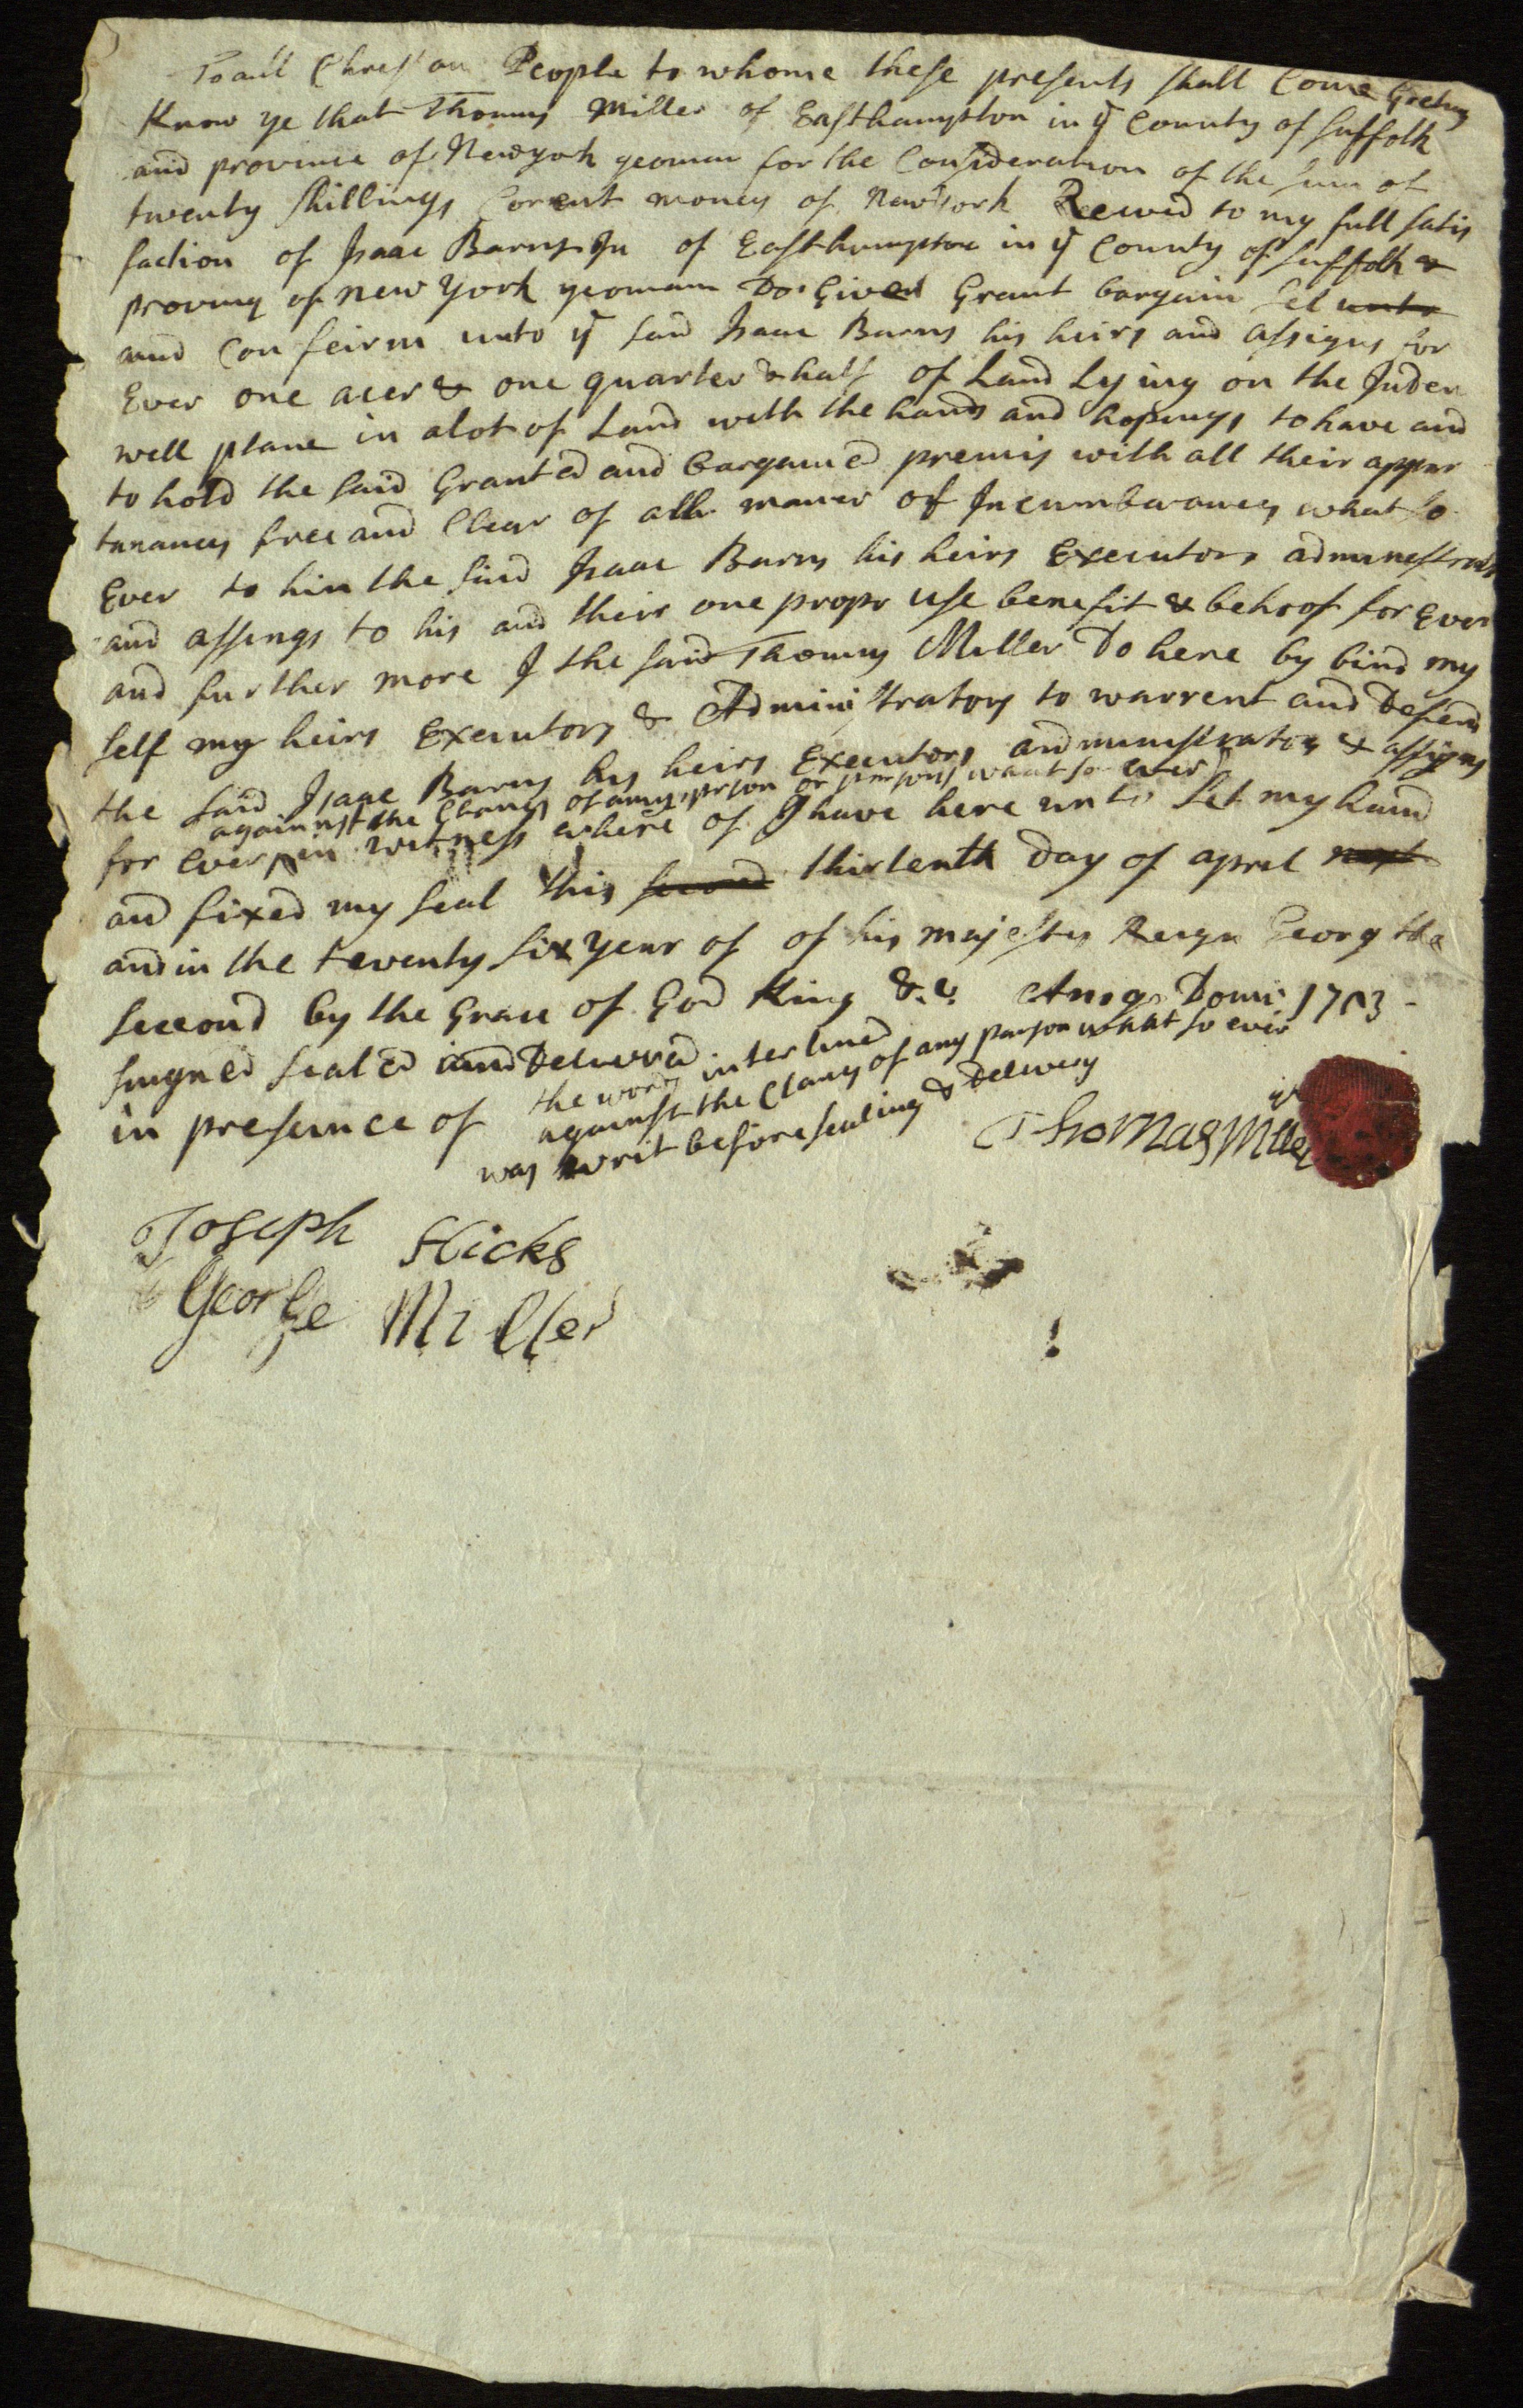 To all Chrestan People to whome these presents shall Come Greting
Know ye that Thomas Miller of Easthampton in ye County of Suffolk
and province of Newyork yeoman for the Consideration of the sum of
twenty shillings Corrent money of New York Received to my full satis
faction of Isaac Barns Ju of Easthampton in ye County of Suffolk &
provinc of New York yeomam Do Give Grant bargain sel unto
and Confeirm unto ye said Isaac Barns his heirs and assigns for
Ever one acer & one quarter & half of Land Lying on the Inden
well plane in a lot of Land with the and to have and
to hold the said Granted and bargained premis with all their appur
tanances free and Clear of all maner of Incumbarances what so
Ever to him the said Isaac Barns his heirs Executors
and assings to his and their one propr use benefit & behoof for Ever
and further more I the said Thomas Miller Do here by bind my
self my heirs Executors & Administrators to warrent and Defend
the said Isaac Barns his heirs Executors & assigns
against the Clames of any prson or persons what so ever
for Ever in witness where of I have here unto set my hand
and fixed my seal this second thirtenth Day of aprel next
and in the twenty six year of of his majesties Reign Georg the
second by the Grace of God King &.c. Domi 1753
singned sealed and Delivered
in presence of
the words interlined
against the Clames of any parson what so ever
was writ before sealing & Delivery
Thomas Miller
Joseph Hicks
George Miller